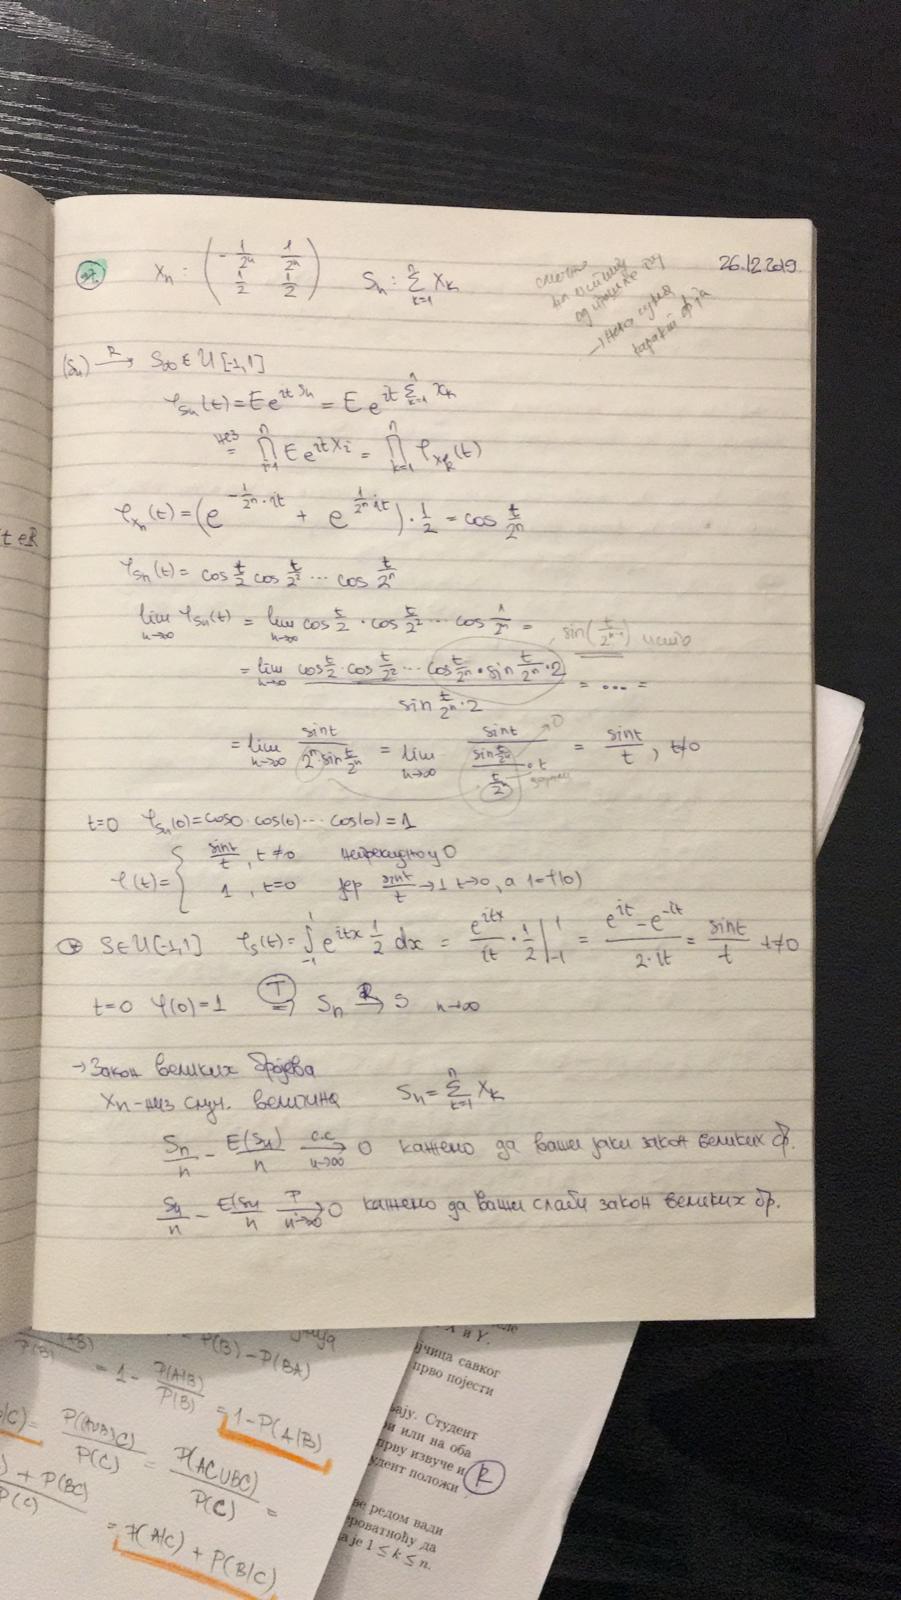 26.12.2019.
Xₙ : ( -1/2ⁿ 1/2ⁿ ; 1/2 1/2 ) Sₙ : ∑ₖ₌₁ⁿ Xₖ
(Sₙ) →ᴿ S∞ ∈ U[-1,1]
φ_Sₙ(t) = E e^{itSₙ} = E e^{it ∑ₖ₌₁ⁿ Xₖ}
нез = ∏ᵢ₌₁ⁿ E e^{itXᵢ} = ∏ₖ₌₁ⁿ φ_Xₖ(t)
φ_Xₙ(t) = (e^{-1/2ⁿ·it} + e^{1/2ⁿ it}) · 1/2 = cos t/2ⁿ
t∈R
φ_Sₙ(t) = cos t/2 cos t/2² ... cos t/2ⁿ
lim_{n→∞} φ_Sₙ(t) = lim_{n→∞} cos t/2 · cos t/2² ... cos t/2ⁿ =
sin(t/2ⁿ⁻¹)
= lim_{n→∞} (cos t/2 · cos t/2² ... cos t/2ⁿ · sin t/2ⁿ · 2) / (sin t/2ⁿ · 2) = ... =
= lim_{n→∞} sin t / (2ⁿ · sin t/2ⁿ) = lim_{n→∞} sin t / ((sin t/2ⁿ)/(t/2ⁿ) · t) = sin t / t, t≠0
→ 0
t=0 φ_Sₙ(0) = cos 0 · cos(0) ... cos(0) = 1
φ(t) = { sin t / t, t≠0 непрекидно у 0
1, t=0 јер sin t / t → 1 t→0, а 1=φ(0)
S∈U[-1,1] φ_S(t) = ∫₋₁¹ e^{itx} 1/2 dx = e^{itx}/it · 1/2 |₋₁¹ = (e^{it} - e^{-it}) / (2·it) = sin t / t t≠0
t=0 φ(0)=1 (T) ⇒ Sₙ →ᴿ S n→∞
→ Закон великих бројева
Xₙ - низ случ. величина Sₙ = ∑ₖ₌₁ⁿ Xₖ
Sₙ/n - E(Sₙ)/n →^{с.с} _{n→∞} 0 кажемо да важи јаки закон великих бр.
Sₙ/n - E(Sₙ)/n →^{P} _{n→∞} 0 кажемо да важи слаби закон великих бр.
P(B) - P(BA)
= 1 - P(AB)/P(B) = 1 - P(A|B)
P((A∪B)C)/P(C) = P(AC∪BC)/P(C) =
+ P(BC)
P(C)
= P(A|C) + P(B|C)
X и Y.
савког
прво појести
Студент
или на оба
прву извуче и
R
положи
редом вади
да
је 1 ≤ k ≤ n.